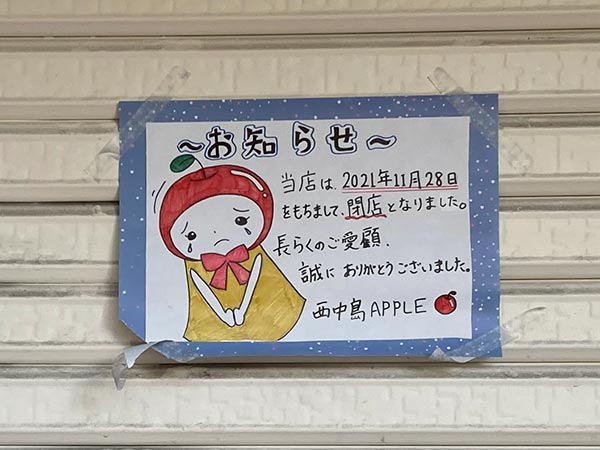 ~お知らせ~
当店は、2021年11月28日
をもちまして、閉店となりました。
長らくのご愛顧、
誠にありがとうございました。
西中島APPLE